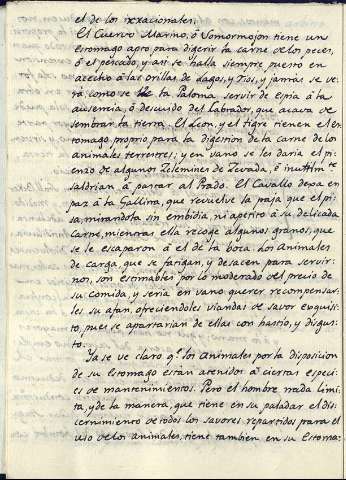 el de los irracionales.
El Cuervo Marino, ó Somormojon tiene un
estomago apto para digerir la carne de los peces,
ó el pescado, y asi se halla siempre puesto en
acecho á las orillas de Lagos, y Rios, y jamás se ve-
rá, como se ve la Paloma servir de espia á la
ausencia, ó descuido del Labrador, que acava de
sembrar la tierra. El Leon, y el tigre tienen el es-
tomago proprio para la digestion de la carne de los
animales terrestres; y en vano se les daria el pi-
enzo de algunos de Levada, ó inutilmte
saldrian á pastar al Prado. El Cavallo dexa en
paz á la Gallina, que rebuelve la paja que el pi-
sa, mirandola sin embidia, ni apetito á su delicada
carne, mientras ella recoge algunos granos, que
se le escaparon á el de la boca. Los Animales
de carga, que se fatigan, y desacen para servir-
nos, son estimables por lo moderado del precio de
su comida, y seria en vano querer recompensar-
les su afan, ofreciendoles viandas de savor exquisi-
to, pues se apartarian de ellas con hastio, y disgus-
to.
Ya se ve claro q.e los animales por la disposicion
de su estomago estan atenidos á ciertas especi-
es de mantenimientos. Pero el hombre nada limi-
ta, y de la manera, que tiene en su paladar el dis-
cernimiento de todos los savores repartidos para el
uso de los animales, tiene tambien en su estoma-